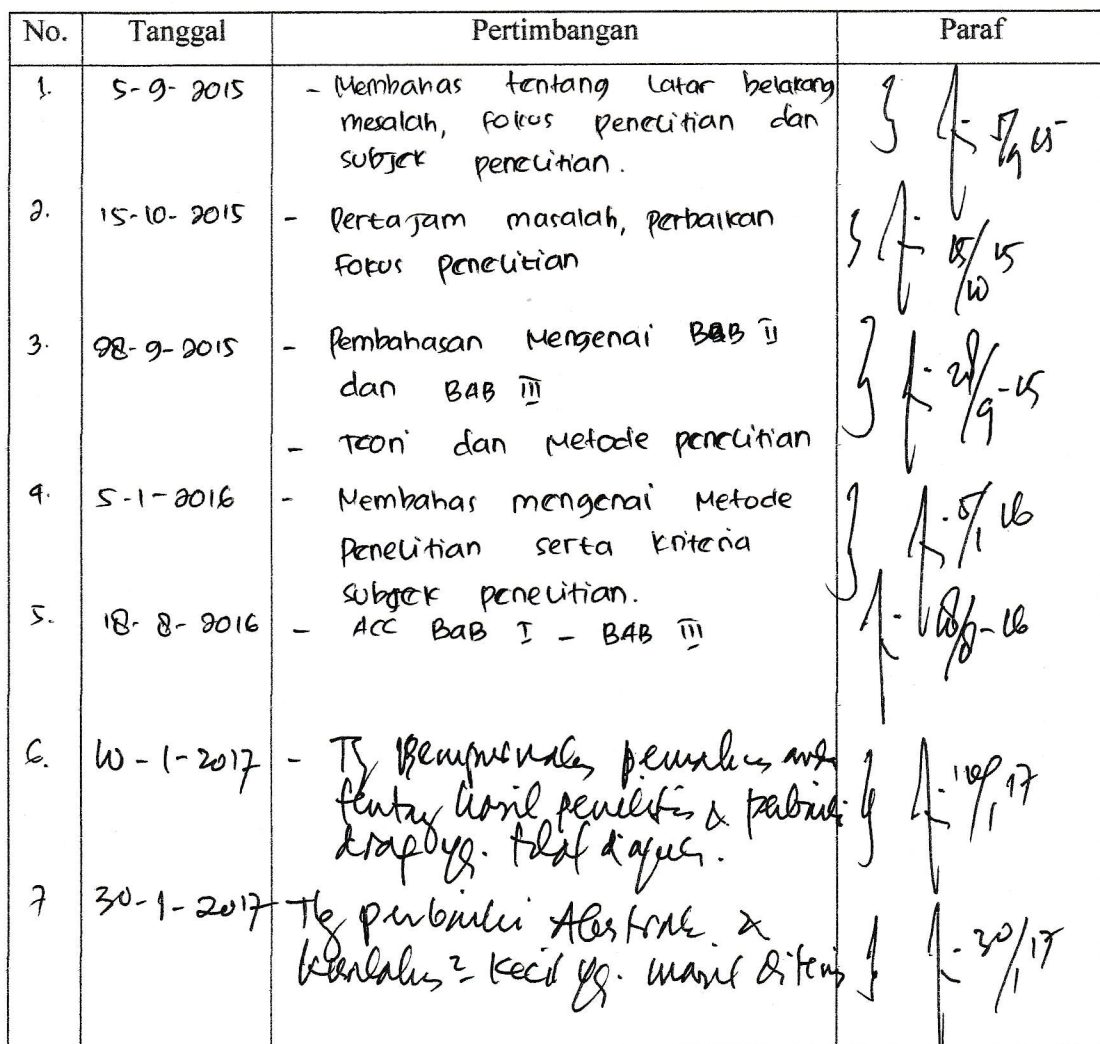 No. Tanggal Pertimbangan Paraf
1. 5-9-2015 - Membahas tentang Latar belakang
mesalah, fokus penelitian dan
subjek penelitian.
5/9 15
2. 15-10-2015 - Pertajam masalah, perbaikan
fokus penelitian
15/10 15
3. 28-9-2015 - Pembahasan Mengenai BAB II
dan BAB III
28/9-15
- Teori dan Metode penelitian
4. 5-1-2016 - Membahas mengenai Metode
Penelitian serta kriteria
subjek penelitian.
5/1 16
5. 18-8-2016 - ACC BaB I - BAB III
18/8-16
6. 10-1-2017 -
hasil penelitian &
yg.
10/1 17
7 30-1-2017 perbaiki Abstrak &
kecil yg. masih
30/1 17